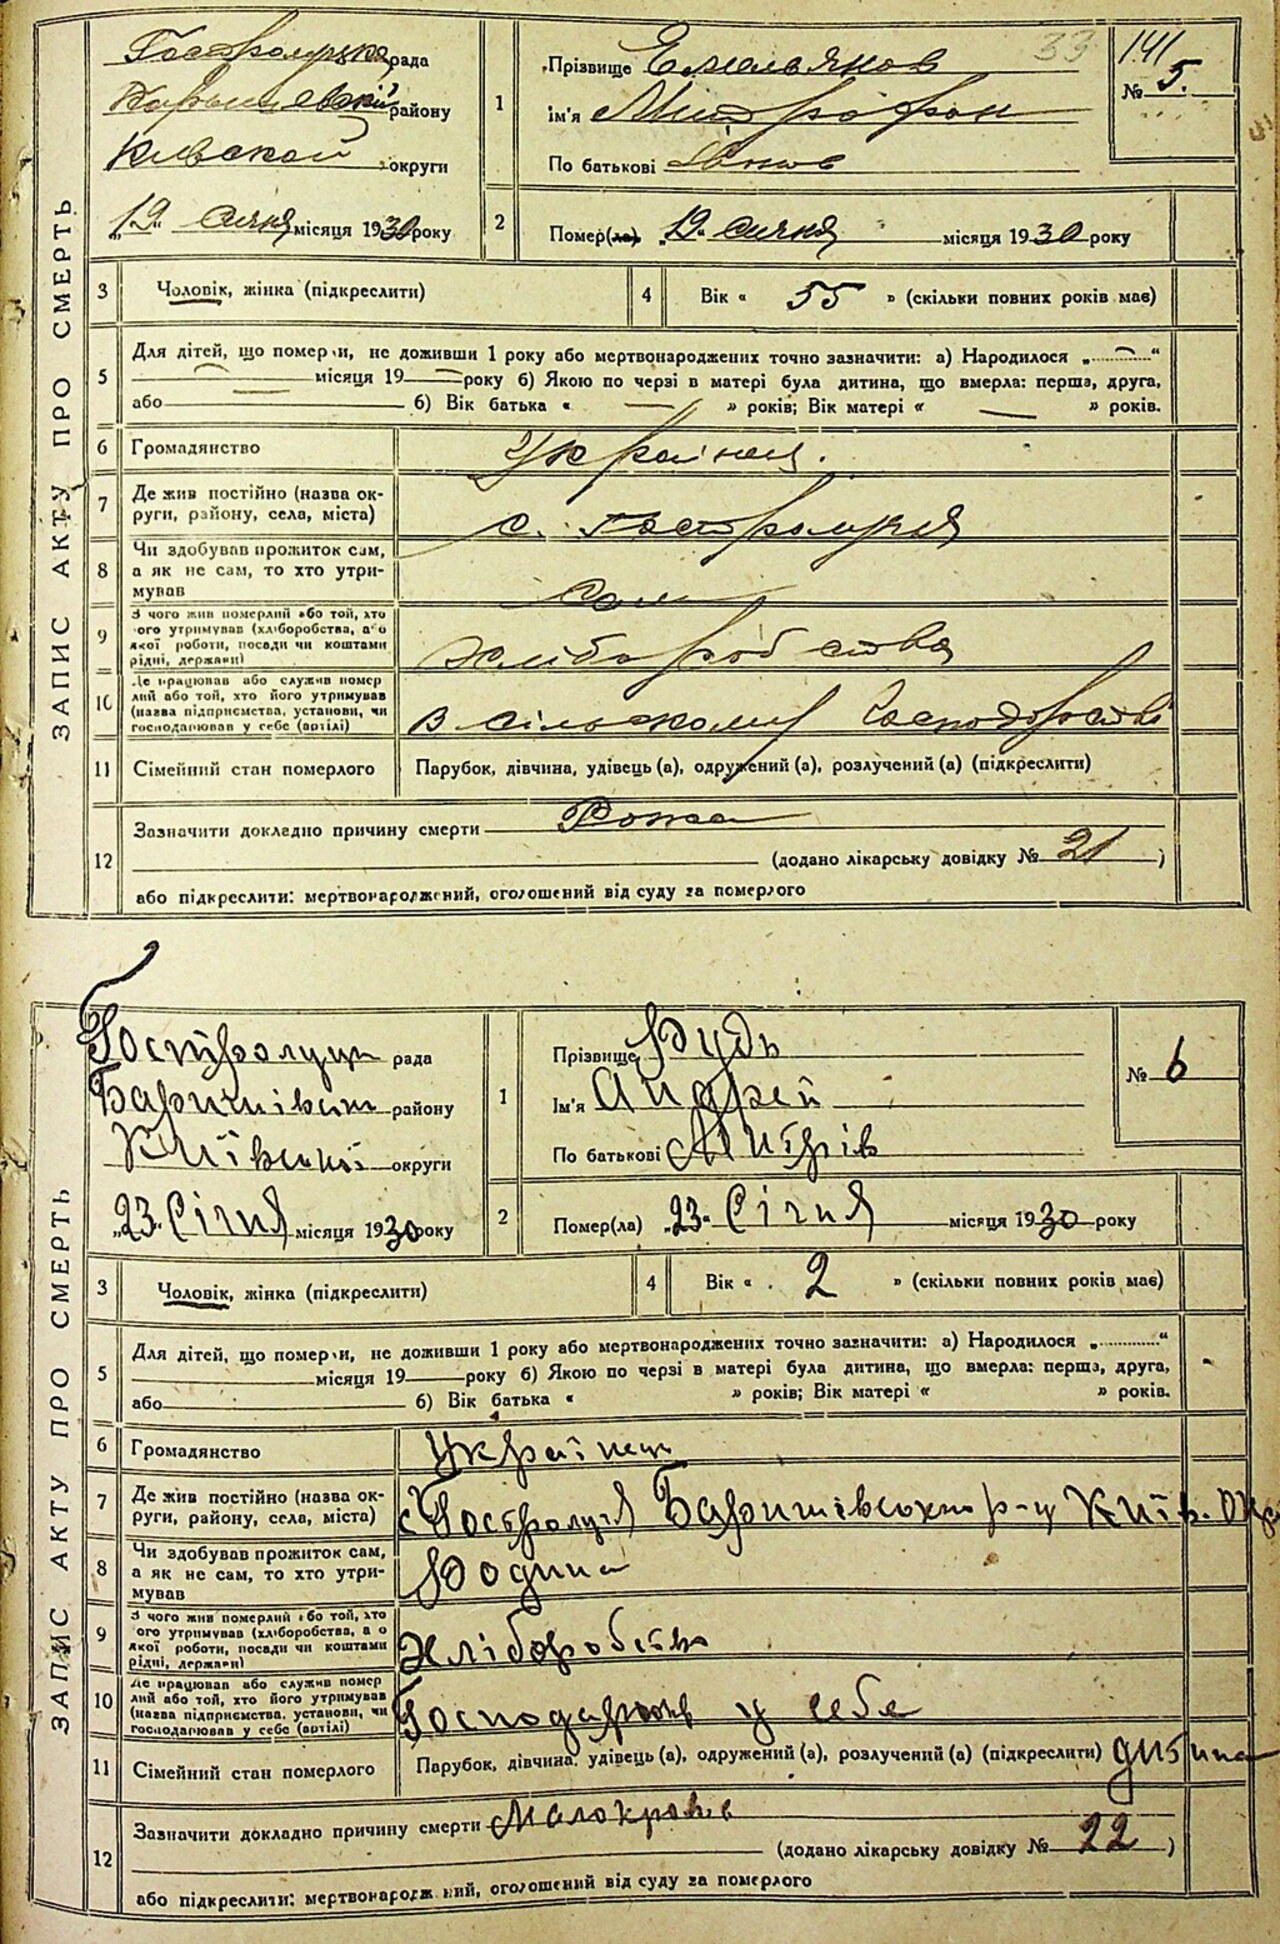 ЗАПИС АКТУ ПРО СМЕРТЬ
Гостролуцька рада
Баришевский району
Киевской округи
„19“ Сичня місяця 1930 року
1
Прізвище Емельянов
33
Ім'я Митрофан
По батькові Іванов
141
№ 5.
2
Помер(ла) „19“ Сичня місяця 1930 року
3 Чоловік, жінка (підкреслити)
4 Вік « 55 » (скільки повних років має)
5 Для дітей, що померли, не доживши 1 року або мертвонароджених точно зазначити: а) Народилося „ “
місяця 19 року б) Якою по черзі в матері була дитина, що вмерла: перша, друга,
або б) Вік батька « — » років; Вік матері « — » років.
6 Громадянство Українец.
7 Де жив постійно (назва ок-
руги, району, села, міста) с. Гостролучя
8 Чи здобував прожиток сам,
а як не сам, то хто утри-
мував Сам
9 З чого жив померлий або той, хто
його утримував (хліборобства, або
якої роботи, посади чи коштами
рідні, держави) Хліборобства
10 Де працював або служив помер
лий або той, хто його утримував
(назва підприємства, установи, чи
господарював у себе (артілі) В сільскому Господорстві
11 Сімейний стан померлого Парубок, дівчина, удівець (а), одружений (а), розлучений (а) (підкреслити)
12 Зазначити докладно причину смерти Рожа
(додано лікарську довідку № 21 )
або підкреслити: мертвонароджений, оголошений від суду за померлого
ЗАПИС АКТУ ПРО СМЕРТЬ
Гостролуцьк рада
Баришівськ району
Київської округи
„23“ Січня місяця 1930 року
1
Прізвище Рудь
Ім'я Андрей
По батькові Дмитрів
№ 6
2
Помер(ла) „23“ Січня місяця 1930 року
3 Чоловік, жінка (підкреслити)
4 Вік « 2 » (скільки повних років має)
5 Для дітей, що померли, не доживши 1 року або мертвонароджених точно зазначити: а) Народилося „ “
місяця 19 року б) Якою по черзі в матері була дитина, що вмерла: перша, друга,
або б) Вік батька « » років; Вік матері « » років.
6 Громадянство Українец
7 Де жив постійно (назва ок-
руги, району, села, міста) с Гостролуччя Баришівського р-у Київ. Окр
8 Чи здобував прожиток сам,
а як не сам, то хто утри-
мував Родина
9 З чого жив померлий або той, хто
його утримував (хліборобства, або
якої роботи, посади чи коштами
рідні, держави) Хліборобство
10 Де працював або служив помер
лий або той, хто його утримував
(назва підприємства, установи, чи
господарював у себе (артілі) Господарював у себе
11 Сімейний стан померлого Парубок, дівчина, удівець (а), одружений (а), розлучений (а) (підкреслити) дитина
12 Зазначити докладно причину смерти Малокровіе
(додано лікарську довідку № 22 )
або підкреслити: мертвонароджений, оголошений від суду за померлого